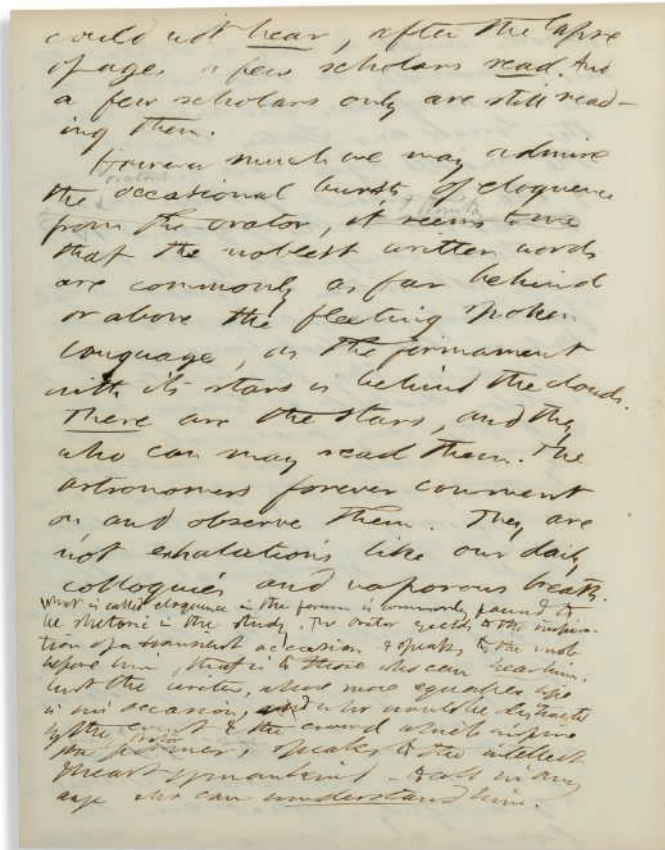 could not hear, after the lapse
of ages a few scholars read. And
a few scholars only are still read-
ing them.
However much we may admire
orator's
the occasional bursts of eloquence
from the orator, it seems to me
that the noblest written words
are commonly as far behind
or above the fleeting spoken
language, as the firmament
with its stars is behind the clouds.
There are the stars, and they
who can may read them. The
astronomers forever comment
on and observe them. They are
not exhalations like our daily
colloquies and vaporous breath.
What is called eloquence in the forum is commonly found to
be rhetoric in the study. The orator yields to the inspira-
tion of a transient occasion & speaks to the mob
before him, that is to those who can hear him.
but the writer, whose more equable life
is his occasion, and who would be distracted
by the event & the crowd which inspire
the former, speaks to the intellect
& heart of mankind - to all in any
age who can understand him.